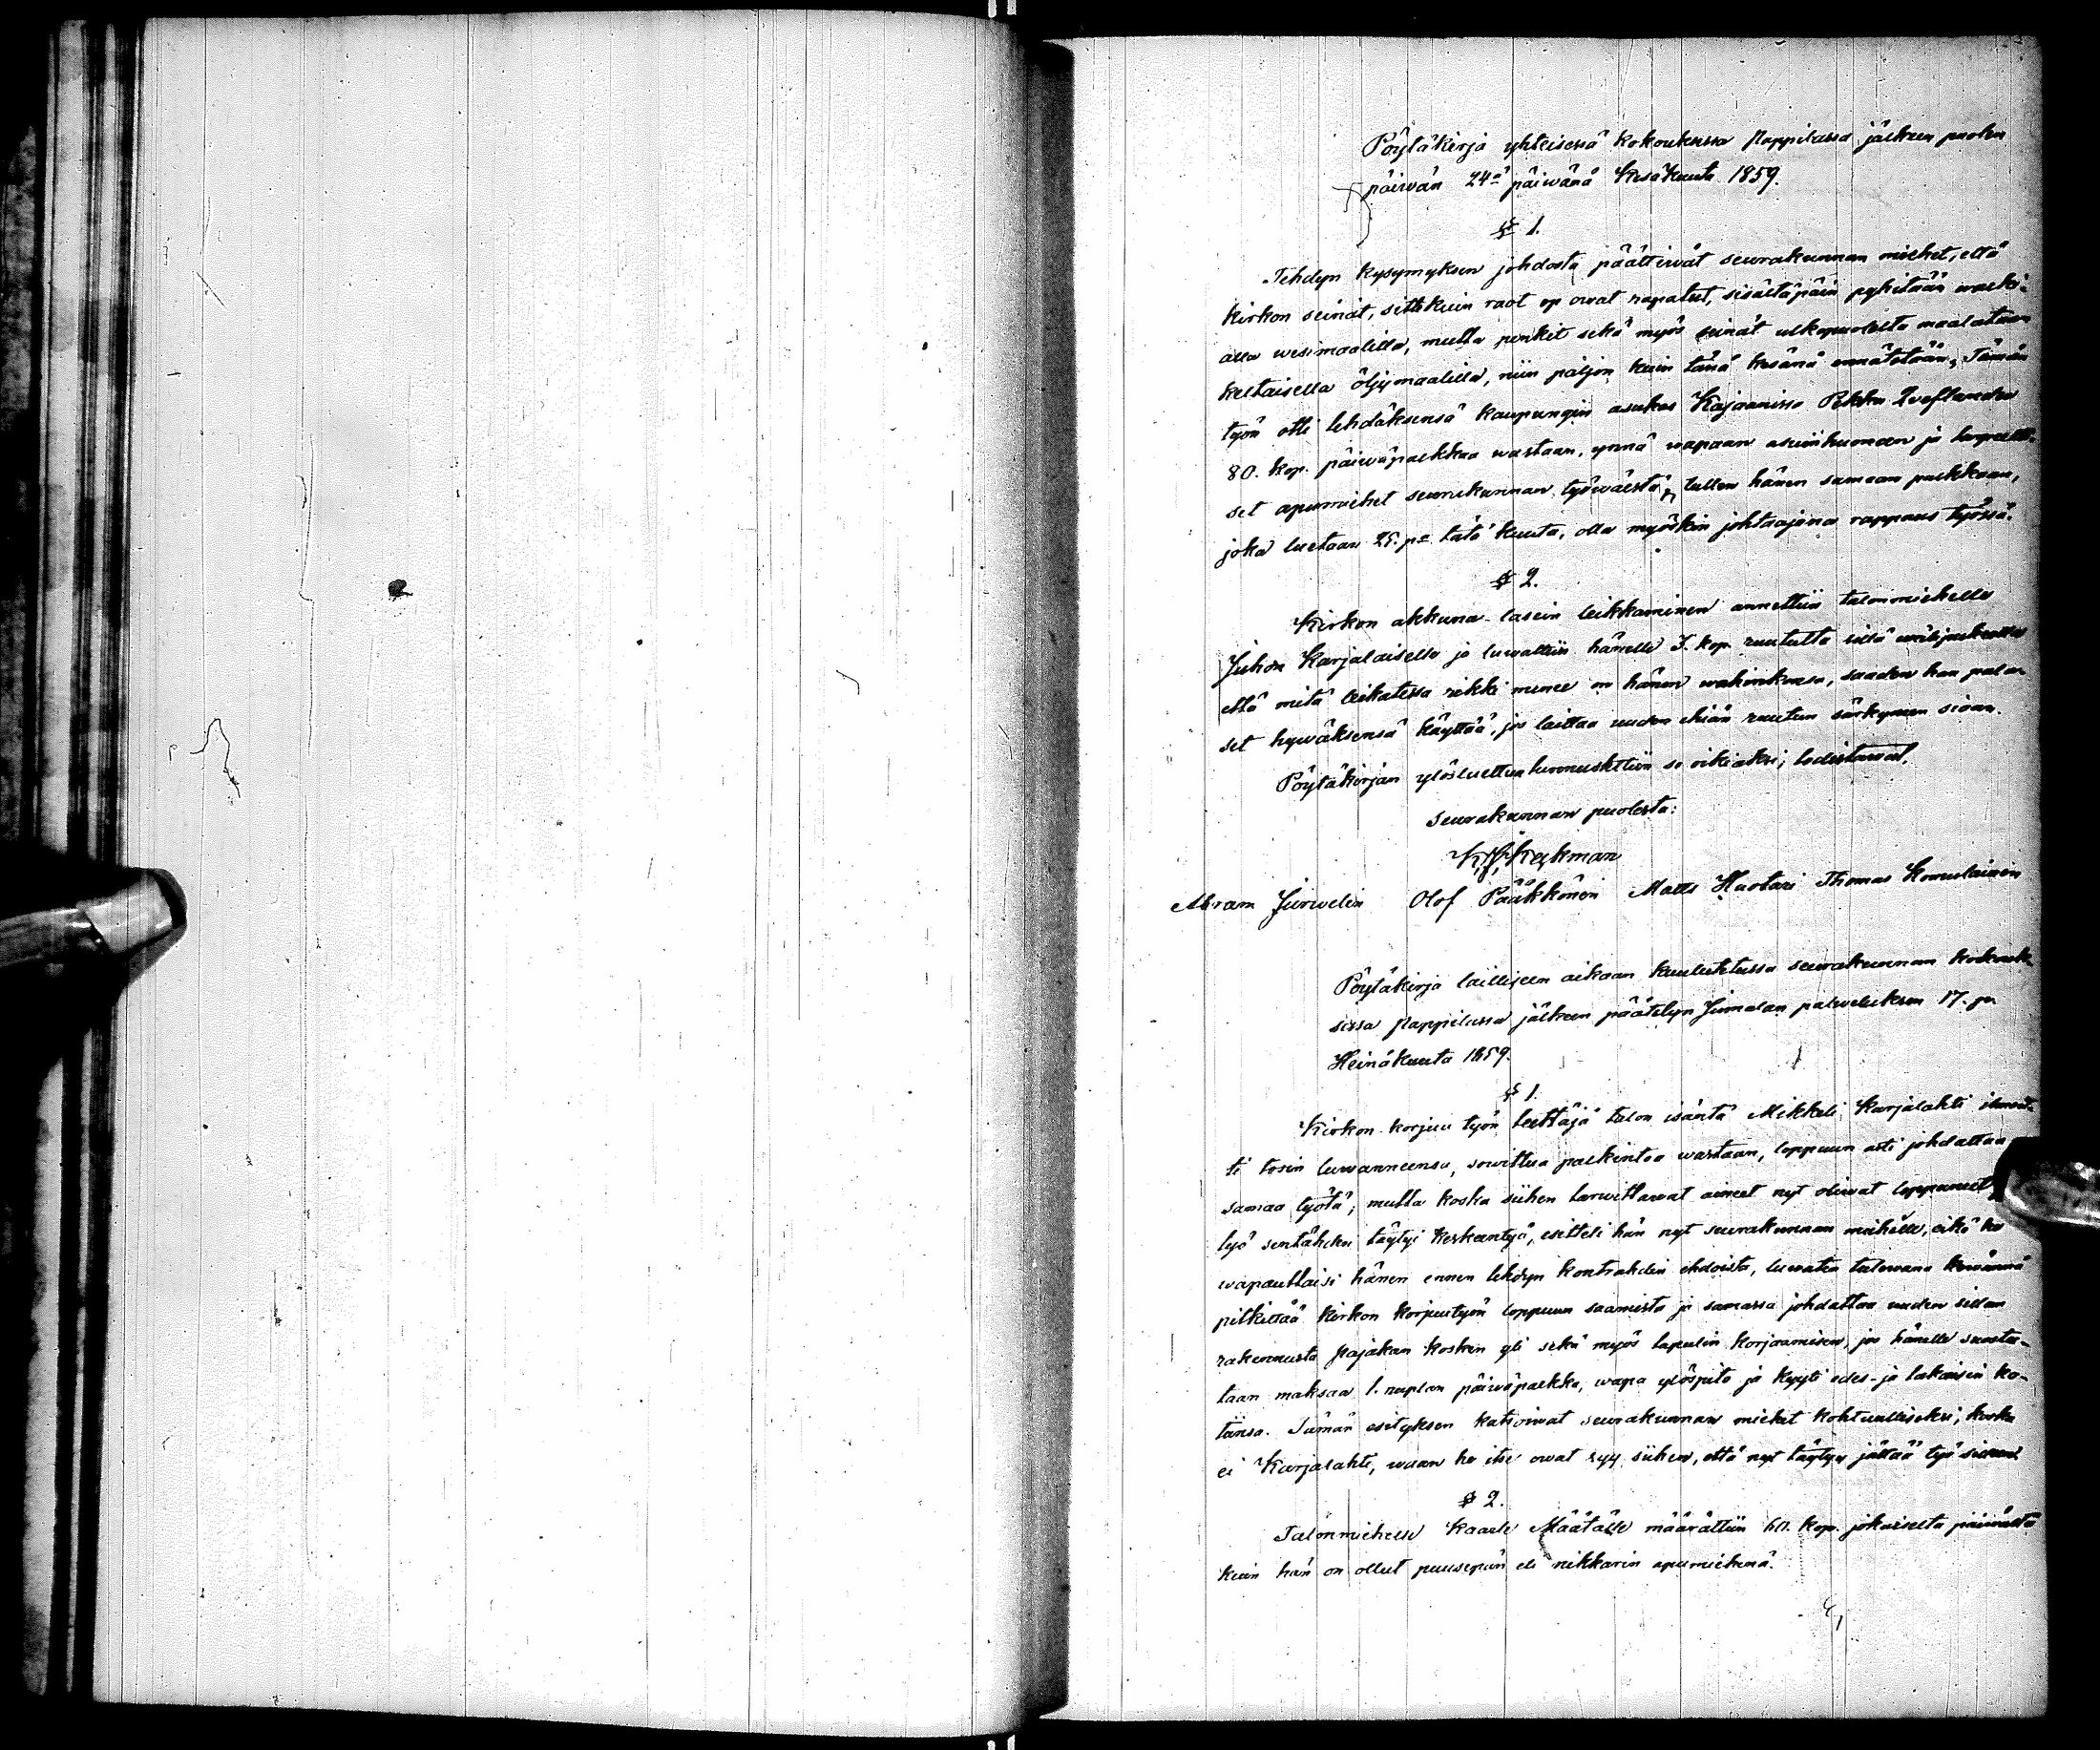 Pöytäkirja yhteisessä kokouksessa Pappilassa jälkeen puolen
päiwän 24nä päiwänä Kesäkuuta 1859.
§ 1.
Tehdyn kysymyksen johdosta päättiwät seurakunnan miehet, että
kirkon seinät, sittekuin raot op owat rapatut, sisältäpäin pyhitään walki-
alla wesimaalilla, mutta penkit sekä myös seinät ulkopuolelta maalataan
keltaisella öljymaalilla, niin paljon kuin tänä kesänä ennätetään. Tämän
työn otti tehdäksensä kaupungin asukas Kajaanissa Pekka
80. kop. päiwäpalkkaa wastaan, ynnä wapaan asuinhuoneen ja tarpeelli-
set apumiehet seurakunnan työwäestä, tullen hänen samaan palkkaan,
joka luetaan 25. pstä tätä kuuta, olla myöskin johtaajana rappaus työssä.
§ 2.
Kirkon akkuna-lasein leikkaminen annettiin talonmiehelle
Juhon Karjalaiselle ja luwattiin hänelle 3. kop. ruutulta sillä wälipuheella
että mitä leikatessa rikki menee on hänen wahinkonsa, saaden hän palaa-
set hywäksensä käyttää, jos laittaa uuden ehiän ruutun särkyneen sioan.
Pöytäkirjan ylösluettua tunnustettiin se oikiaksi; todistawat,
seurakunnan puolesta:
K. J. Keckman
Abram Jurwelin Olof Pääkkönen Matts Huotari Thomas Komulainen
Pöytäkirja lailliseen aikaan kuulutetussa seurakunnan kokouk-
sessa Pappilassa jälkeen päätetyn Jumalan palweluksen 17. pnä
Heinäkuuta 1859.
§ 1.
Kirkon korjuu työn teettäjä talon isäntä Mikkeli Karjalahti ilmoit-
ti tosin luwanneensa, sowittua palkintoa wastaan, loppuun asti johdattaa
samaa työtä; mutta koska siihen tarwittawat aineet nyt oliwat loppuneet ja
työ sentähden täytyi keskeentyä, esitteli hän nyt seurakunnan miehille, eikö he
wapauttaisi hänen ennen tehdyn kontrahdin ehdoista, luwaten tulewana kewännä
pitkittää kirkon korjuutyön loppuun saamista ja samassa johdattaa uuden sillan
rakennusta Pajakan kosken yli sekä myös tapulin korjaamisen, jos hänelle suostu-
taan maksaa 1. ruplan päiwäpalkka, wapa ylöspito ja kyyti edes- ja takaisin ko-
tiinsa. Tämän esityksen katsoiwat seurakunnan miehet kohtuulliseksi, koska
ei Karjalahti, waan he itse owat syy siihen, että nyt täytyy jättää työ siksensä
§ 2.
Talonmiehelle Kaarle Määtälle määrättiin 60. kop. jokaiselta päiwältä
kuin hän on ollut puusepän eli nikkarin apumiehenä.